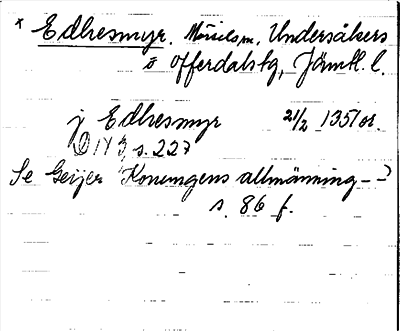 * Edhesmyr. Undersåkers
o Offerdalstg, Jämtl. l.
j Edhesmyr 21/2 1351 or.
DN 3 s. 227
Se Geijer Konungens allmänning –
s. 86 f.